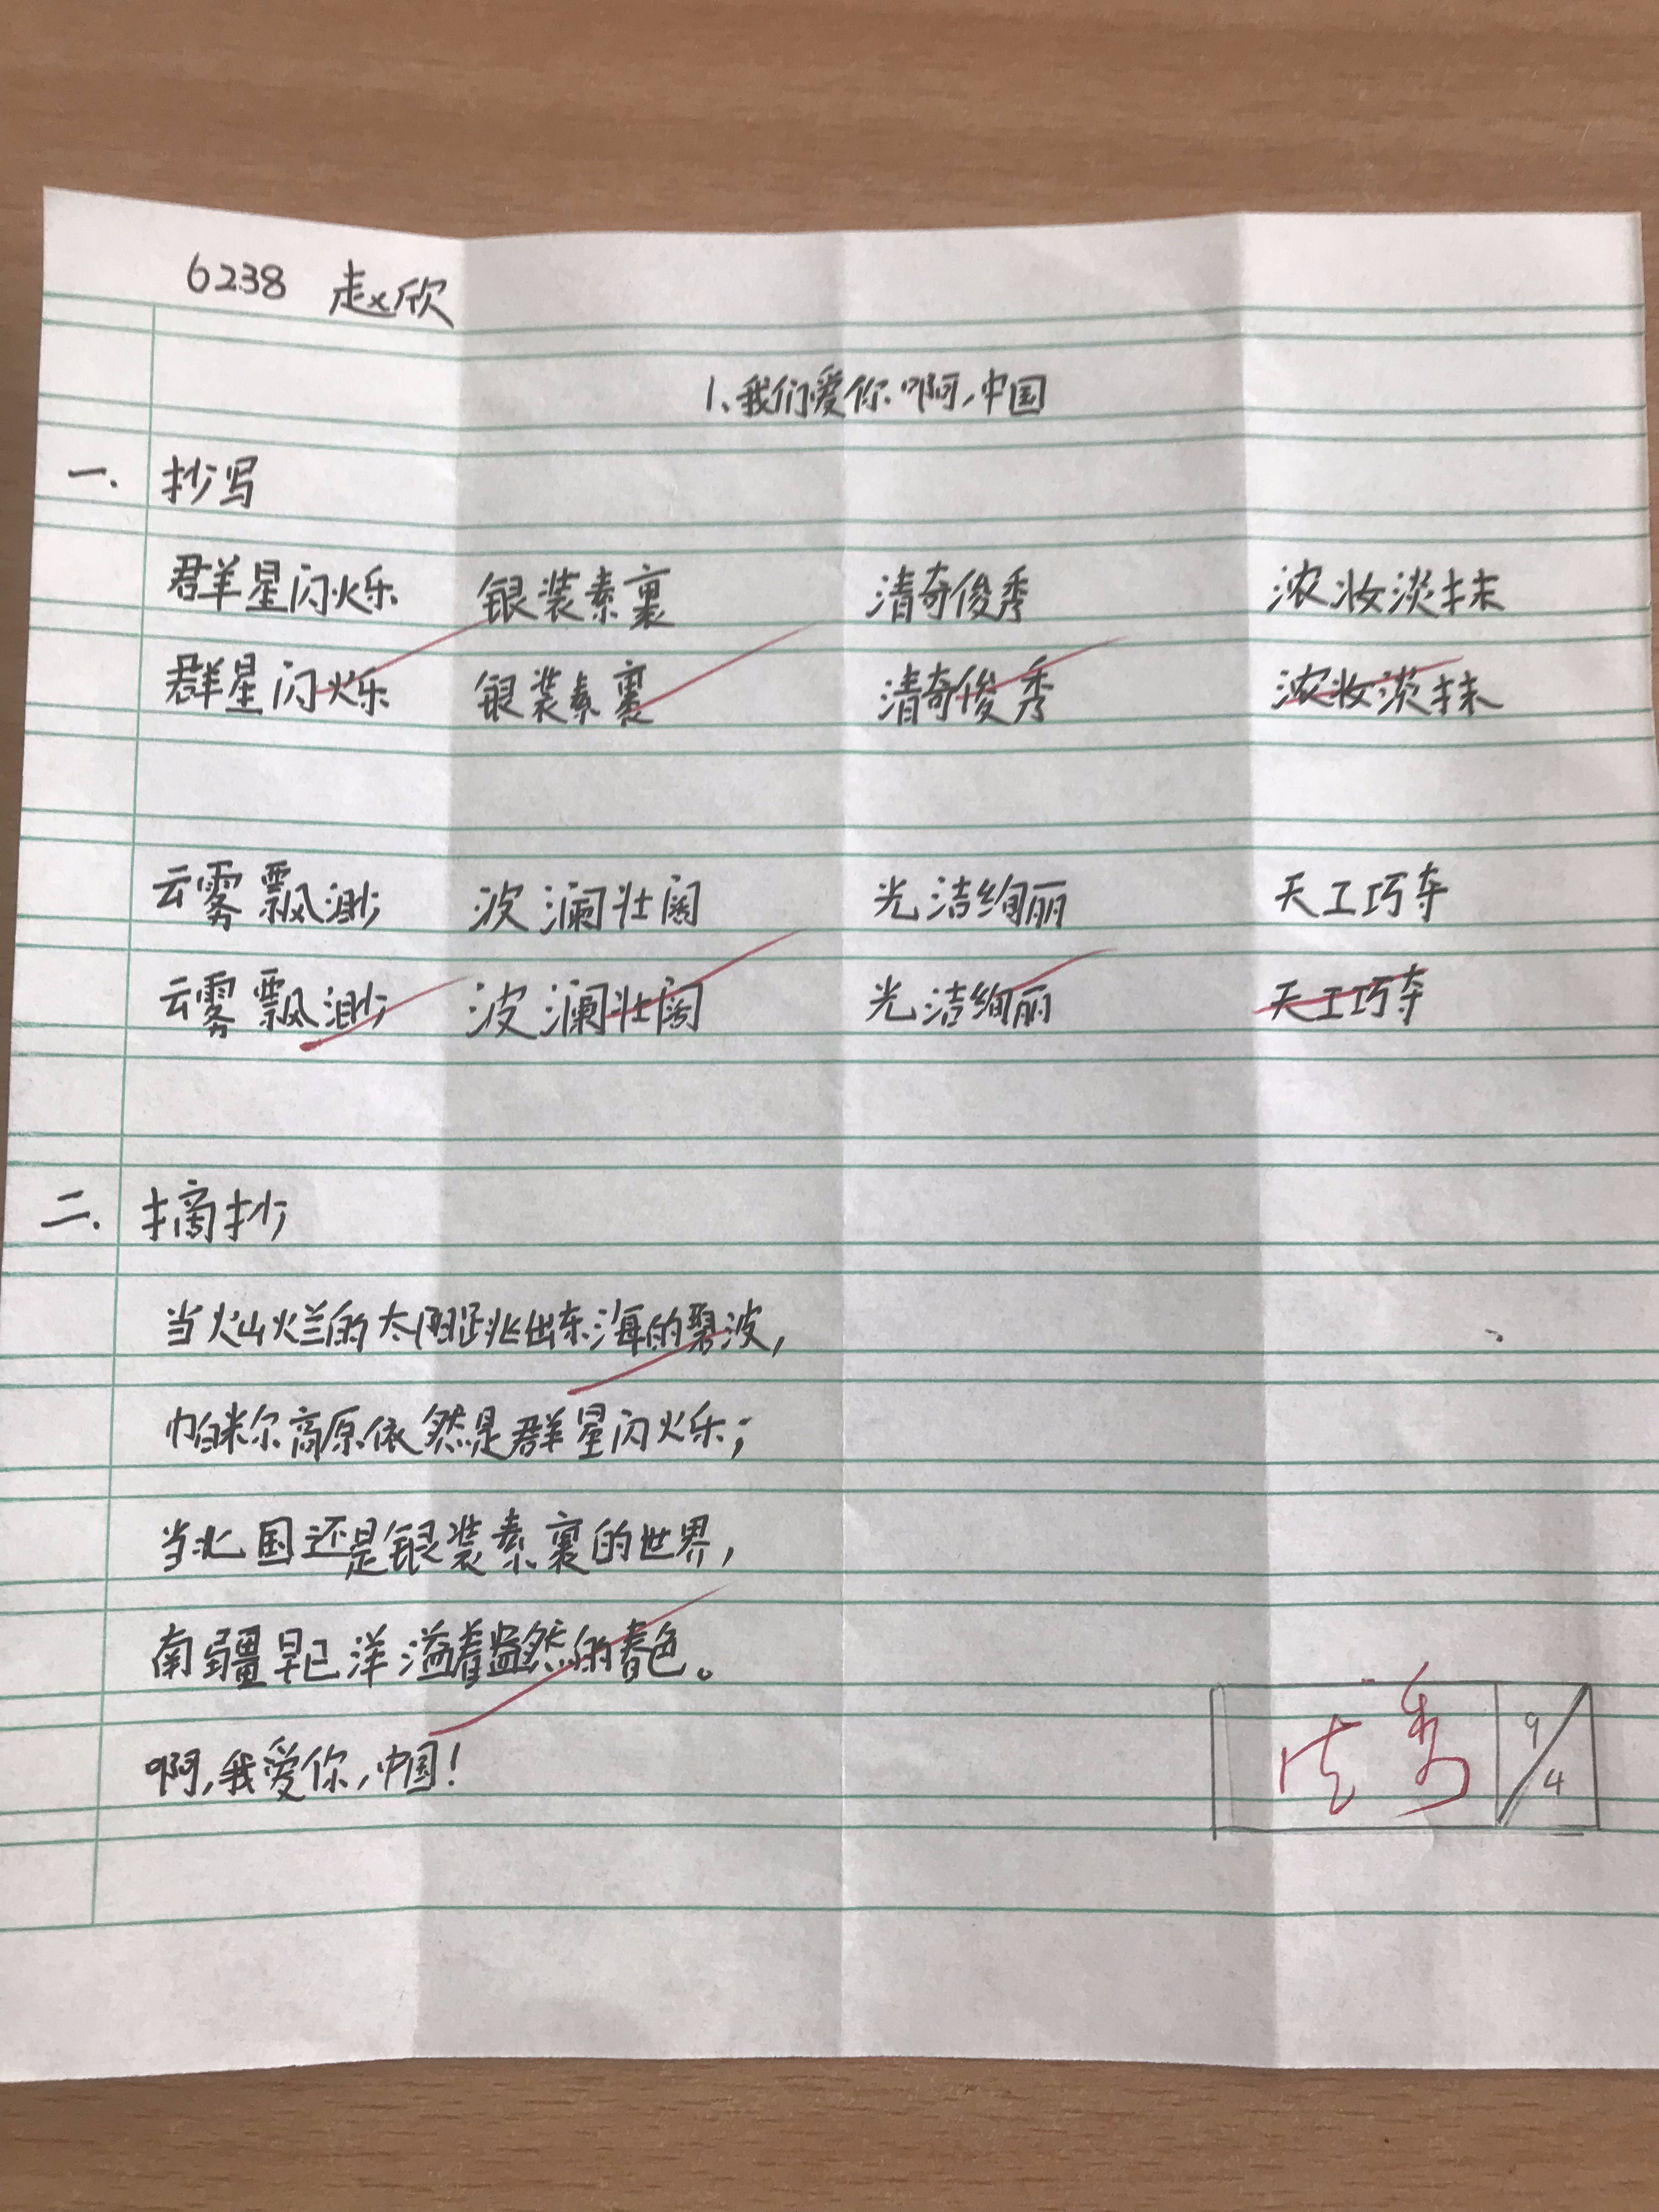 6238 赵欣
1、我们爱你啊,中国
一. 抄写
群星闪烁 银装素裹 清奇俊秀 浓妆淡抹
群星闪烁 银装素裹 清奇俊秀 浓妆淡抹
云雾飘渺 波澜壮阔 光洁绚丽 天工巧夺
云雾飘渺 波澜壮阔 光洁绚丽 天工巧夺
二. 摘抄
当灿烂的太阳跳出东海的碧波,
帕米尔高原依然是群星闪烁;
当北国还是银装素裹的世界,
南疆早已洋溢着盎然的春色。
啊,我爱你,中国!
优秀 9/4